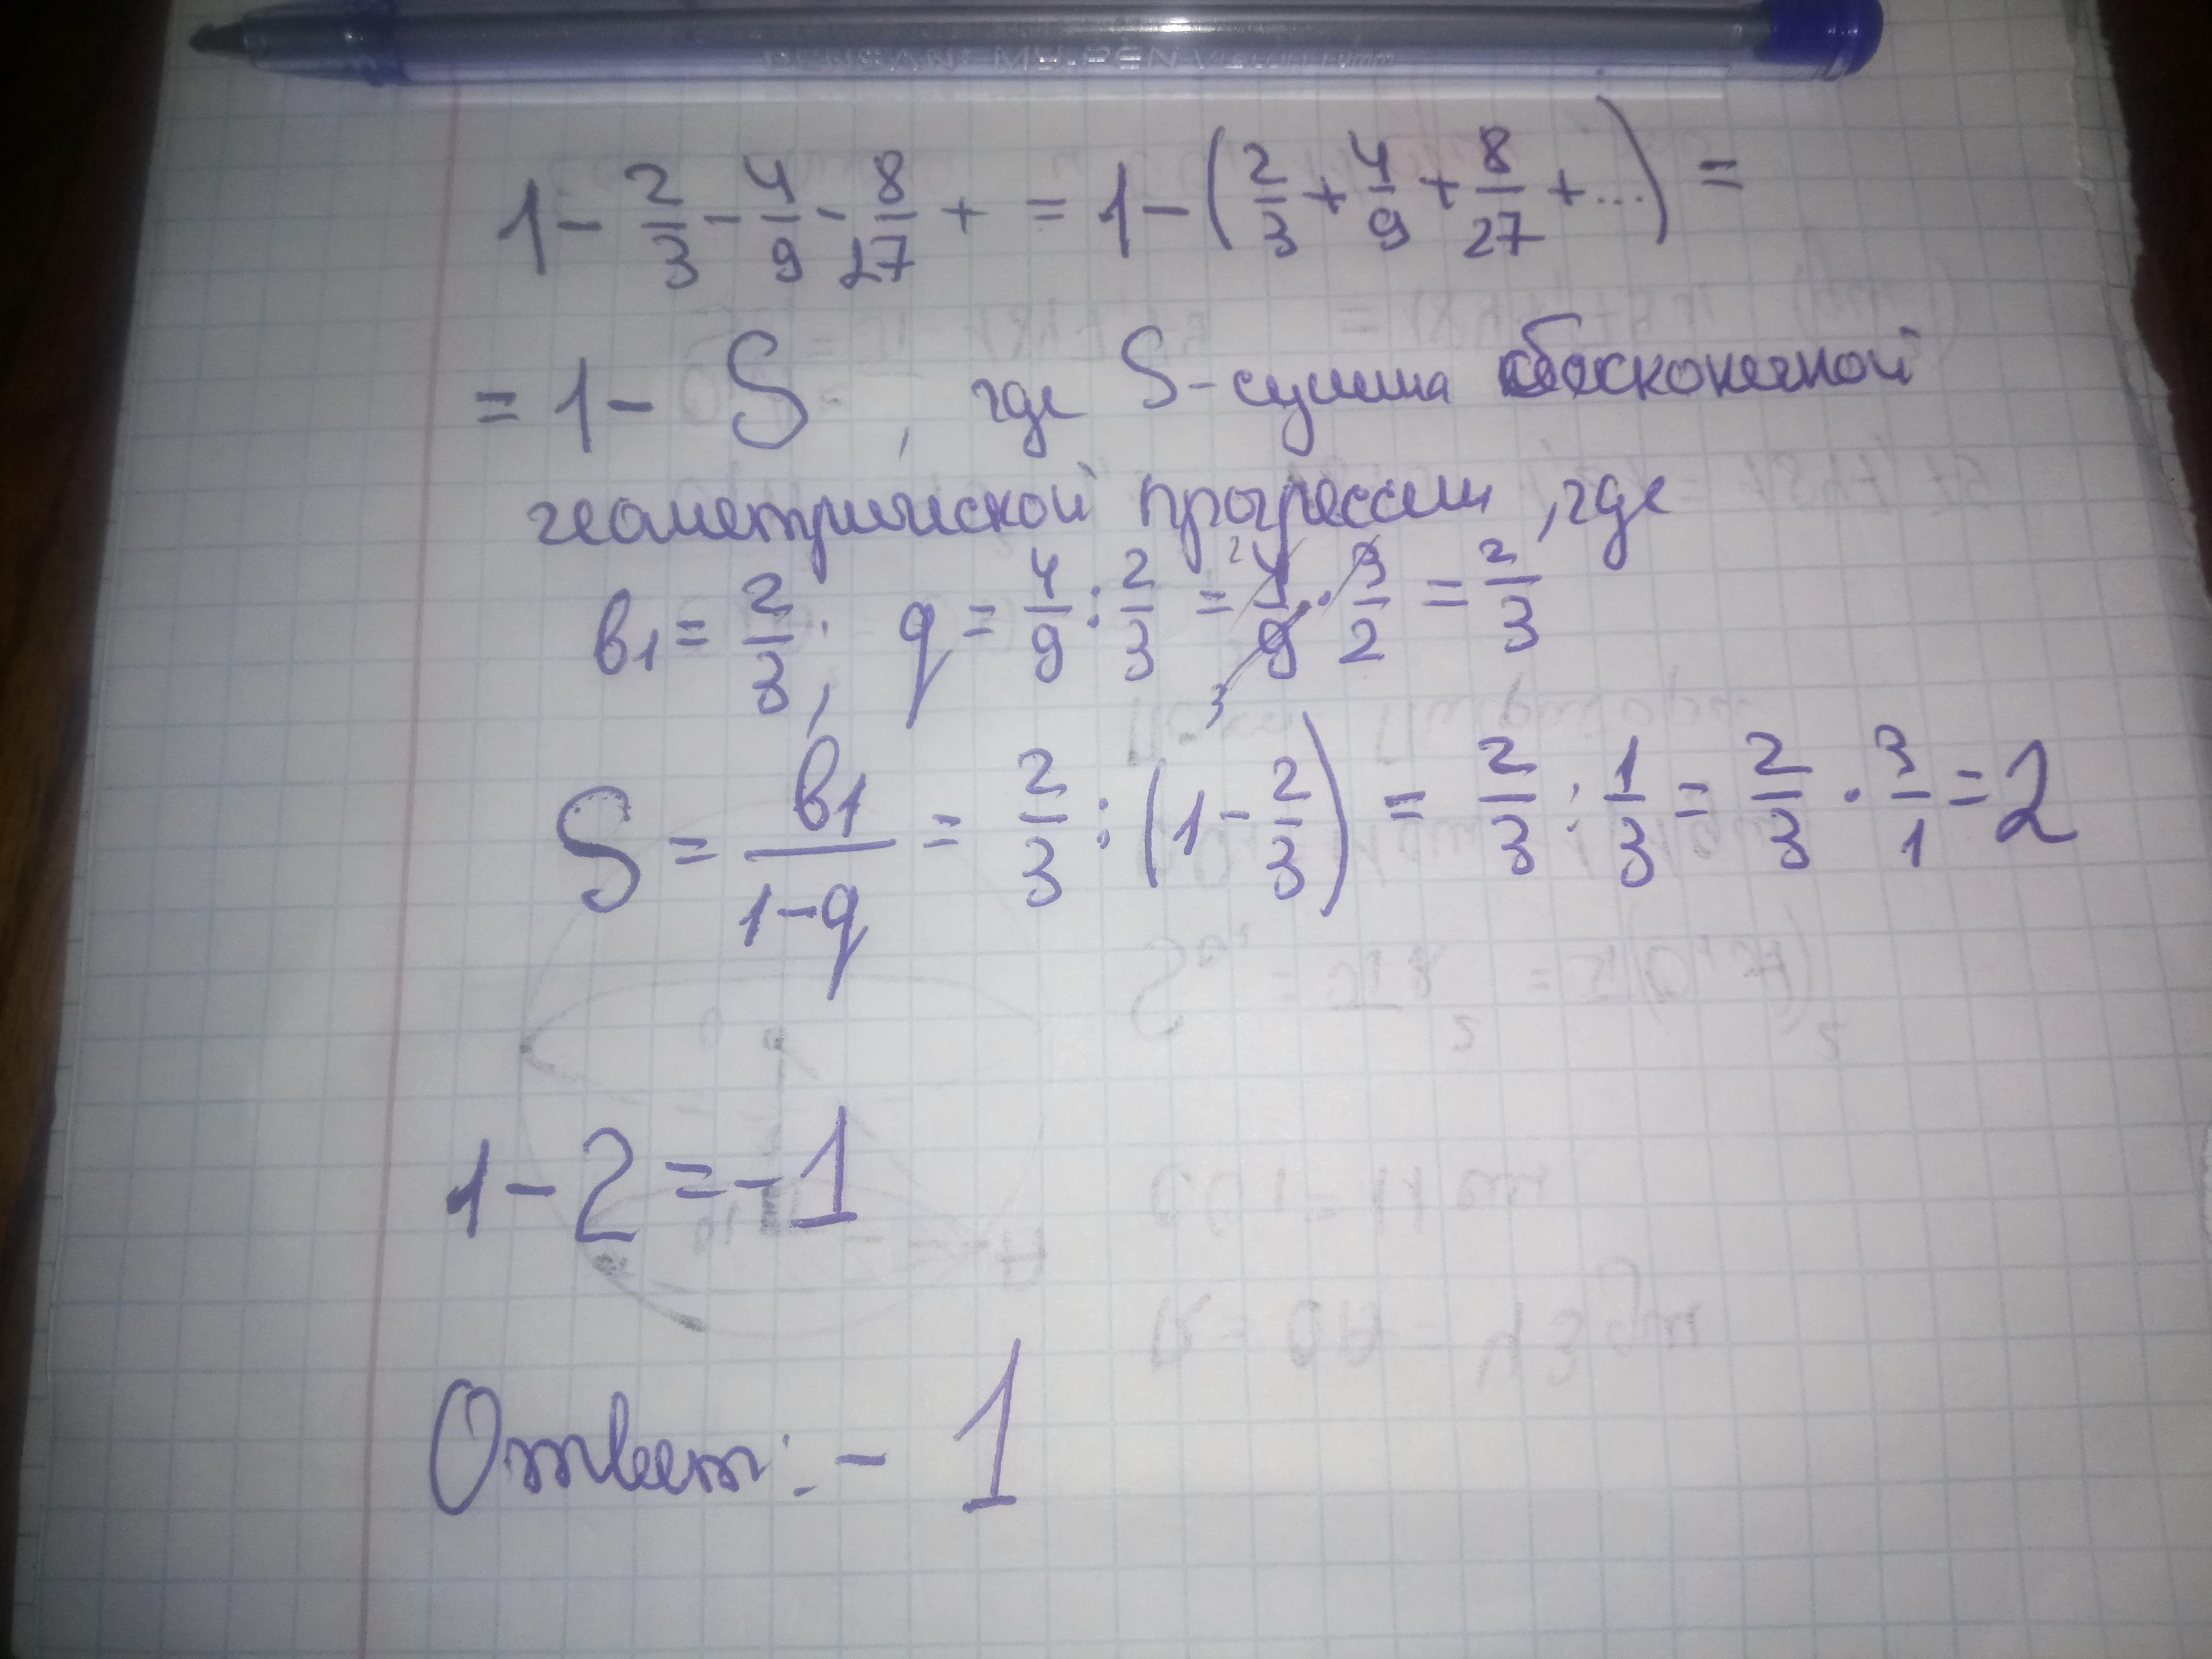 1 - 2/3 - 4/9 - 8/27 + = 1 - (2/3 + 4/9 + 8/27 + ...) =
= 1 - S, где S - сумма бесконечной
геометрической прогрессии, где
в1 = 2/3; q = 4/9 : 2/3 = 4/9 · 3/2 = 2/3
S = в1/(1-q) = 2/3 : (1 - 2/3) = 2/3 : 1/3 = 2/3 · 3/1 = 2
1 - 2 = -1
Ответ: - 1